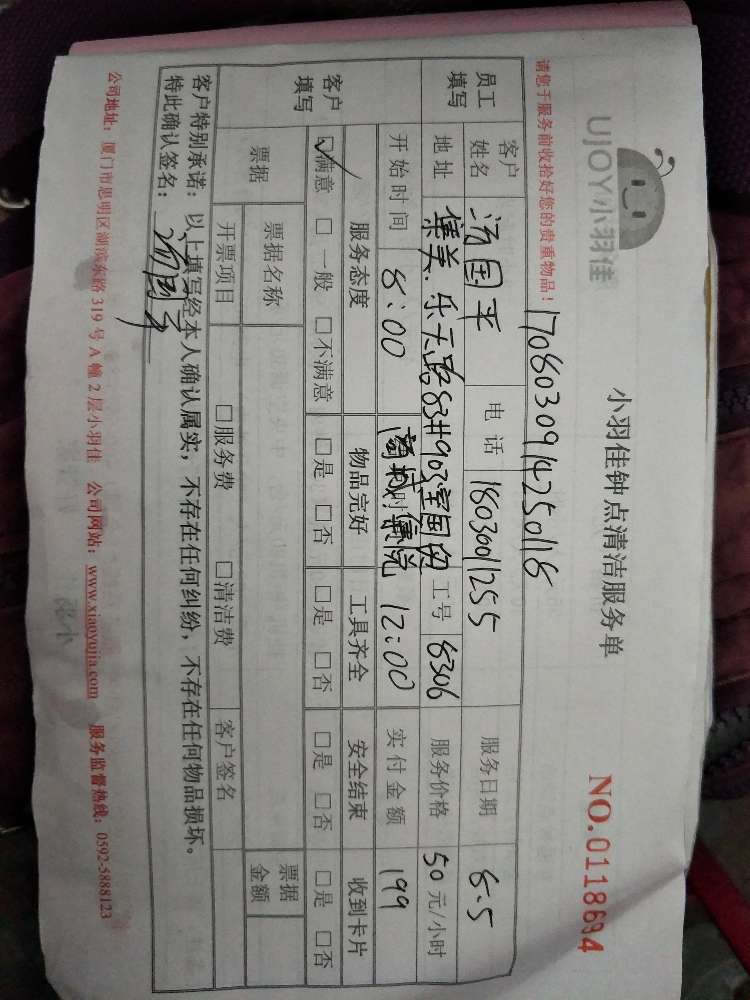 UJOY小羽佳
小羽佳钟点清洁服务单
NO.0118694
请您于服务前收拾好您的贵重物品！
1708030914250118
员工填写 客户姓名 汤国平 电话 18030011255 服务日期 8.5
地址 集美.乐天路83#903室国贸 工号 8306 服务价格 50元/小时
商城集悦
开始时间 8:00 12:00 实付金额 199
客户填写 服务态度 物品完好 工具齐全 安全结束 收到卡片
☑满意 □一般 □不满意 □是 □否 □是 □否 □是 □否 □是 □否
票据 票据名称 票据金额
开票项目 □服务费 □清洁费 客户签名
客户特别承诺：以上填写经本人确认属实，不存在任何纠纷，不存在任何物品损坏。
特此确认签名：
公司地址：厦门市思明区湖滨东路319号A幢2层小羽佳 公司网站：www.xiaoyujia.com 服务监督热线：0592-5888123